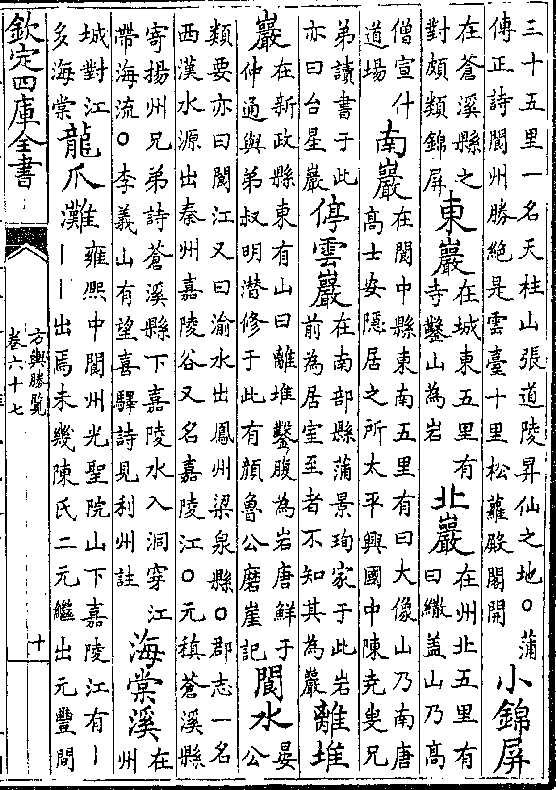 三十五里一名天柱山張道陵昇仙之地○蒲
傳正詩閬州勝絶是雲臺十里松蘿殿閣開
小錦屏
在蒼溪縣之
對頗類錦屏
東巖
在城東五里有
寺鑿山為岩
北巖
在州北五里有
曰繖蓋山乃高
僧宣什
道場
南巖
在閬中縣東南五里有曰大像山乃南唐
高士安隱居之所太平興國中陳堯叟兄
弟讀書于此
亦曰台星巖
停雲巖
在南部縣蒲景珣家于此岩
前為居室至者不知其為巖
離堆
巖
在新政縣東有山曰離堆鑿腹為岩唐鮮于
仲通與弟叔明潛修于此有顔魯公磨崖記
閬水
晏
公
類要亦曰閬江又曰渝水出鳳州梁泉縣○郡志一名
西漢水源出秦州嘉陵谷又名嘉陵江○元稹蒼溪縣
寄揚州兄弟詩蒼溪縣下嘉陵水入洞穿江
帶海流○李義山有望喜驛詩見利州註
海棠溪
在
州
城對江
多海棠
龍爪灘
雍熙中閬州光聖院山下嘉陵江有｜
｜｜出焉未幾陳氏二元繼出元豐間
欽定四庫全書
方輿勝覽
卷六十七
十